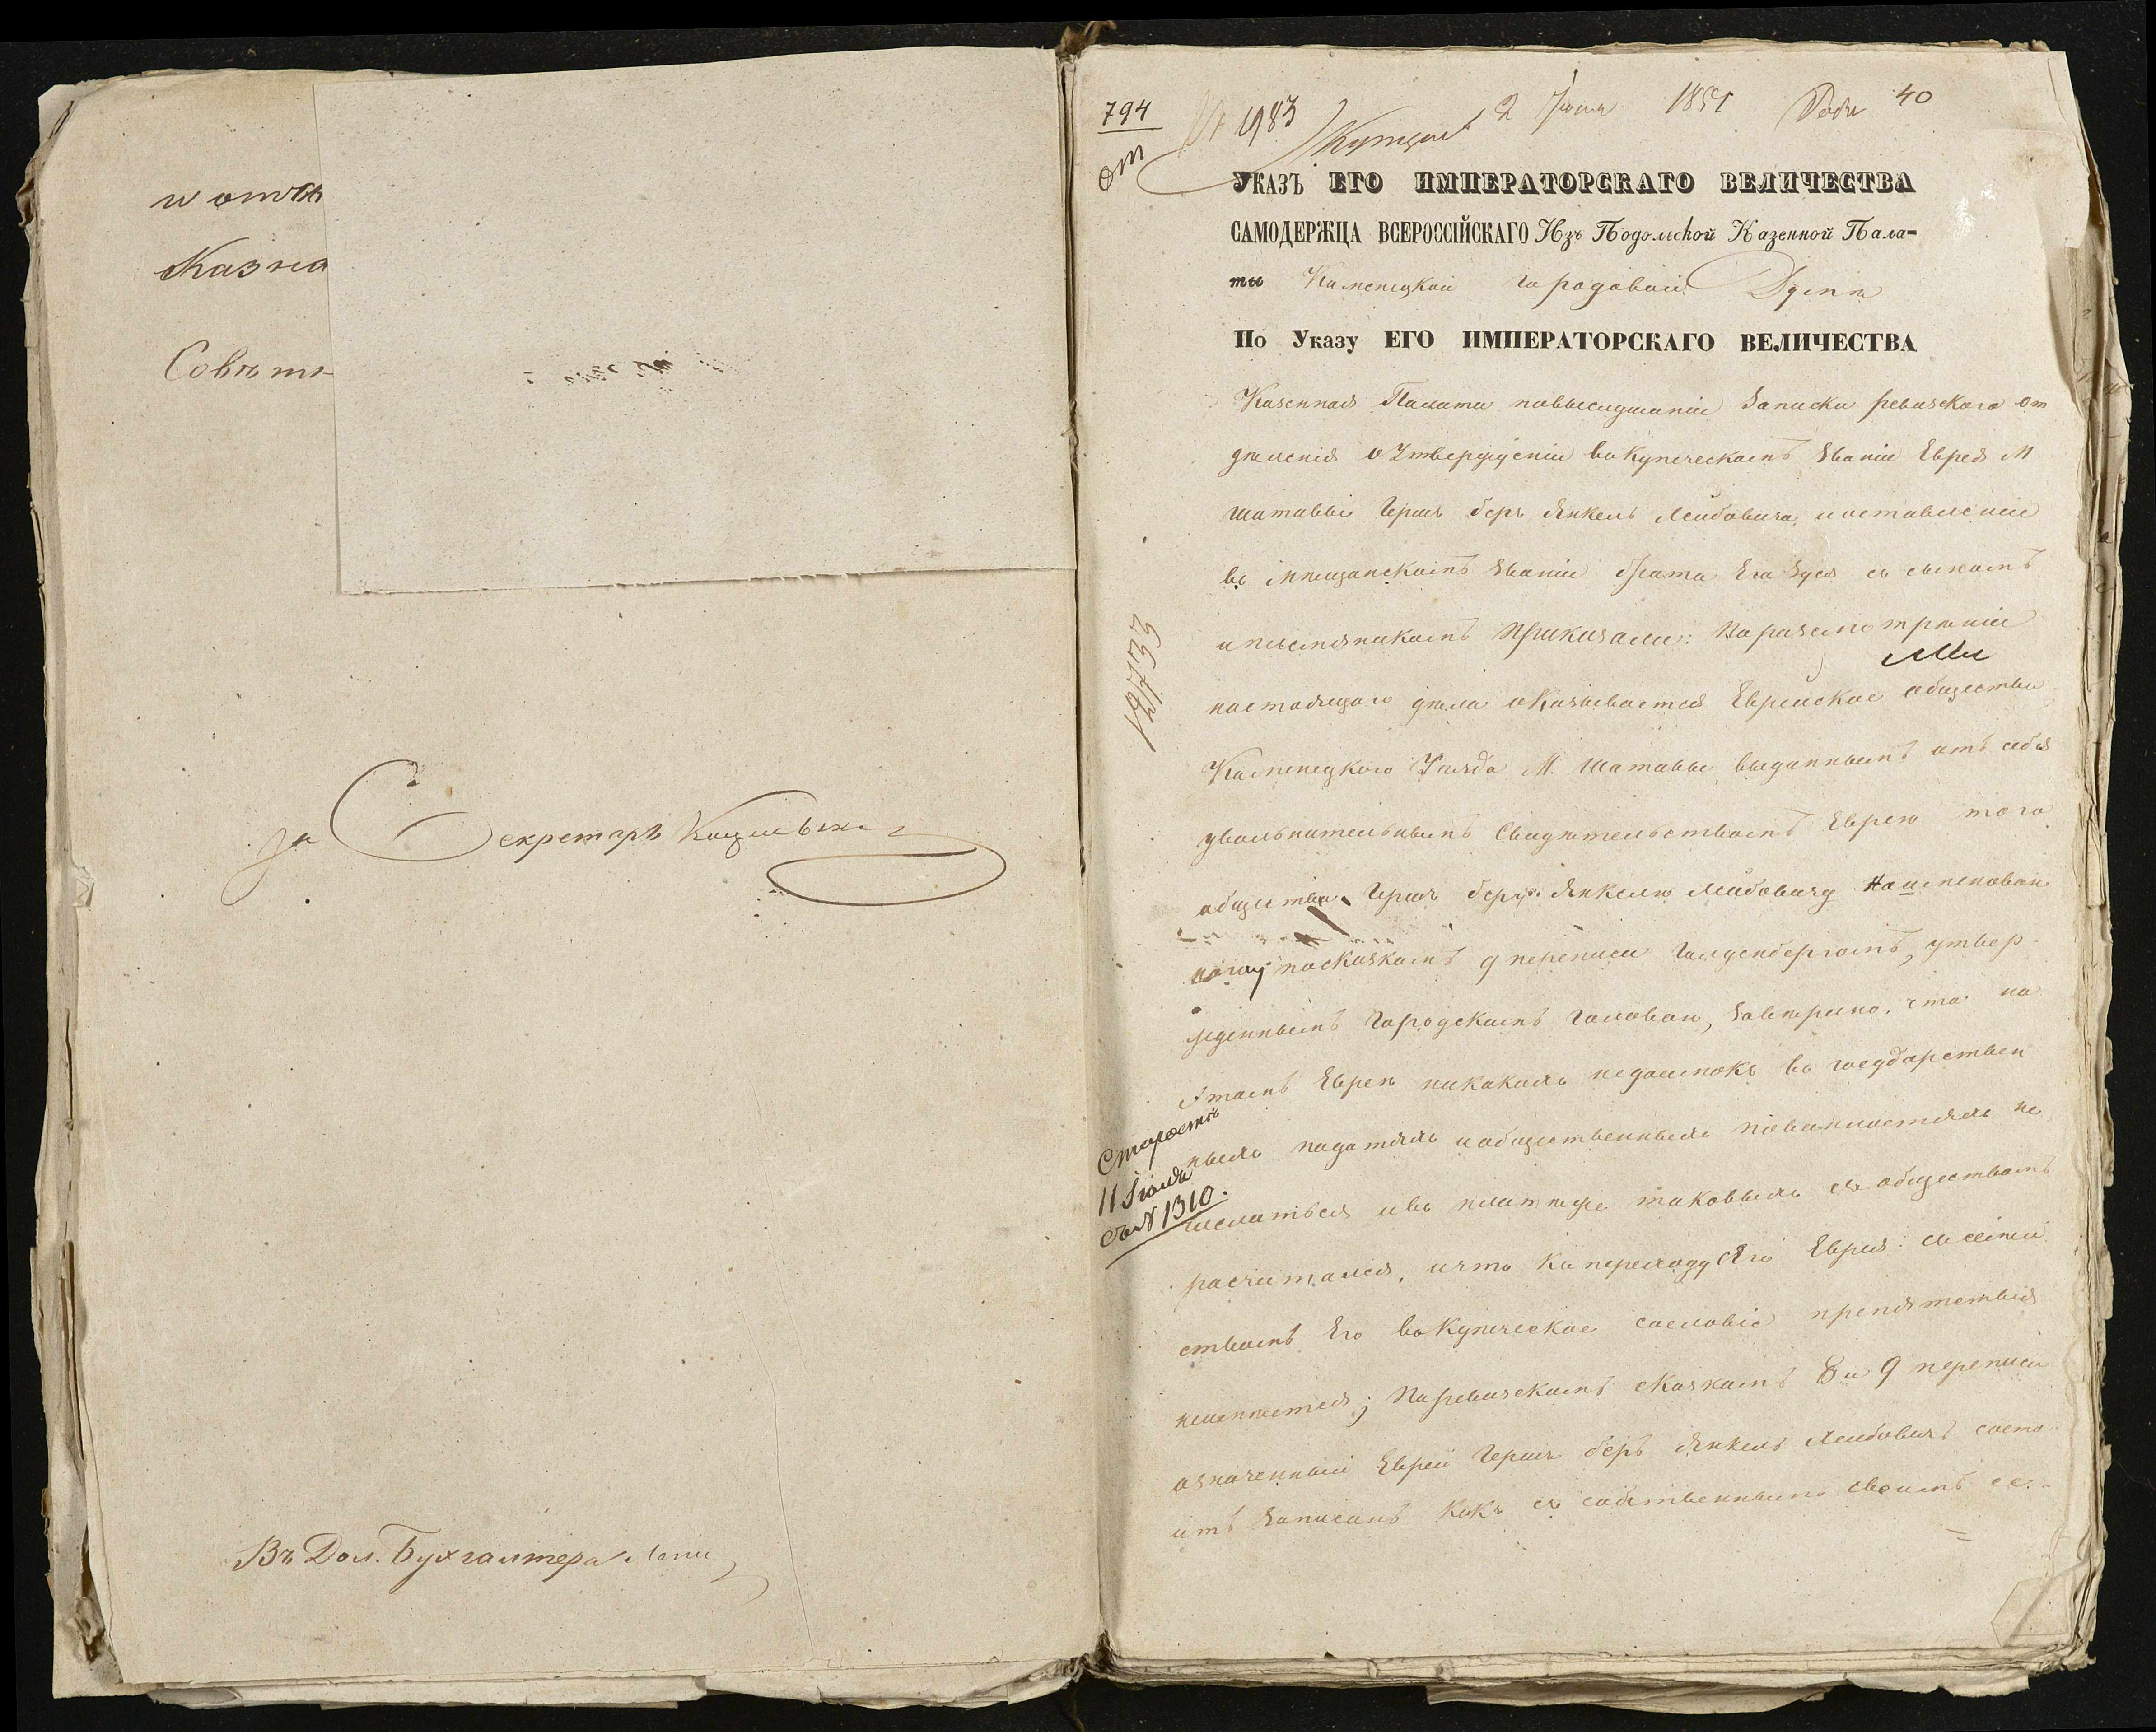 и отчет
Казна
Совѣтн
За Секретаръ
Въ Дол. Бухгалтера
794
от
№ 983
2 Июня 1851 Года 40
УКАЗЪ ЕГО ИМПЕРАТОРСКАГО ВЕЛИЧЕСТВА
САМОДЕРЖЦА ВСЕРОССІЙСКАГО Изъ Подольской Казенной Пала-
ты Каменецкой городовой Думѣ
По Указу ЕГО ИМПЕРАТОРСКАГО ВЕЛИЧЕСТВА
Казенная Палата повыслушаніи Записки ревизскаго от
дѣленія о Утвержденіи въ Купеческомъ Званіи Еврея М
шатавы Гершъ беръ Янкель Лейбовича, и оставленіи
въ мѣщанскомъ Званіи брата Его Зуся съ сыномъ
и племянникомъ Приказали: По разсмотрѣніи
настоящаго дѣла оказывается Еврейское общество
Каменецкого Уѣзда М. Шатавы выданнымъ отъ себя
увольнительнымъ Свидѣтельствомъ Еврею того
общества Гершъ беру Янкелю Лейбовичу Наименован
ному по сказкамъ 9 переписи Голденбергомъ, утвер
жденнымъ городскимъ головою, Завѣрено, что на
Этомъ Евреѣ никакихъ недоимокъ въ государствен
ныхъ податяхъ и общественныхъ повинностяхъ не
числиться и въ платежѣ таковыхъ съ обществомъ
расчитался, и что къ переходу Его Еврея съ семей
ствомъ Его въ Купеческое сословіе препятствія
неимѣется; По ревизскимъ сказкамъ 8 и 9 переписи
означенный Еврей Гершъ беръ Янкель Лейбовичъ состо
итъ Записанъ какъ съ собственнымъ своимъ се-
Старостѣ
11 Іюля
съ № 1310.